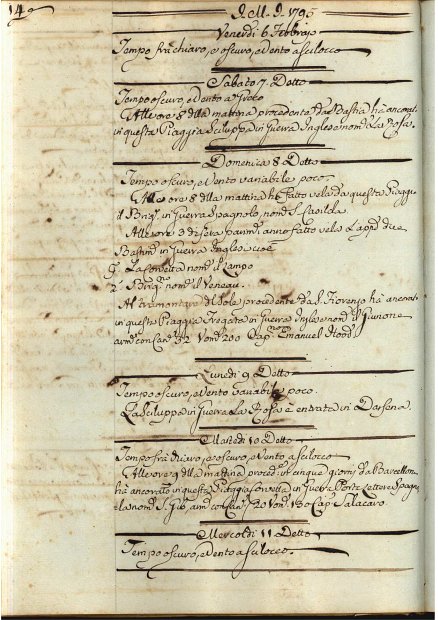 14
J. M. J. 1795
Venerdi 6 Febbrajo
Tempo frà chiaro, e oscuro, e Vento a Scilocco
Sabato 7. Detto
Tempo oscuro, e Vento a
Alle ore 8 della mattina procedente da Bastia hà ancorato
in questa Piaggia Sciluppa in Guerra Inglese nom.ª La Rosa.
Domenica 8 Detto
Tempo oscuro, e Vento variabile poco.
Alle ore 8 della mattina hà fatto vela da questa Piaggia
il Brig.º in Guerra Spagnolo, nom.º S.
Alle ore 3 di sera parim.ti anno fatto vela
Bastim.ti in Guerra Inglesi cioè
La Corvetta nom.ª il Lampo
Brig.no nom.º il
Al tramontar del Sole procedente da S. Fiorenzo hà ancorato
in questa Piaggia Fregata in Guerra Inglese nom.ª il Giunone
arm. con Can.i 32 Vom.i 200 Cap.no Emanuel Hood.
Lunedi 9 Detto
Tempo oscuro, e Vento variabile poco.
La Sciluppa in Guerra La Rosa è entrata in Darsena.
Martedi 10 Detto
Tempo frà chiaro, e oscuro, e Vento a Scilocco
Alle ore 9 della mattina procedente cinque giorni da Barcellona
hà ancorato in questa Piaggia Corvetta in Guerra Porta Lettere Spagnola
nom.ª S. arm. con Can.i 20 Vom.i 130 Cap.
Mercoldi 11 Detto
Tempo oscuro, e Vento a Scilocco.